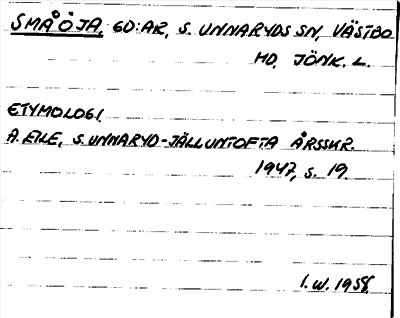 SMÅÖJA, GD:AR, S. UNNARYDS SN, VÄSTBO
HD, JÖNK. L.
ETYMOLOGI.
A. EILE, S. UNNARYD-JÄLLUNTOFTA ÅRSSKR.
1947, s. 19.
I. W. 1958.